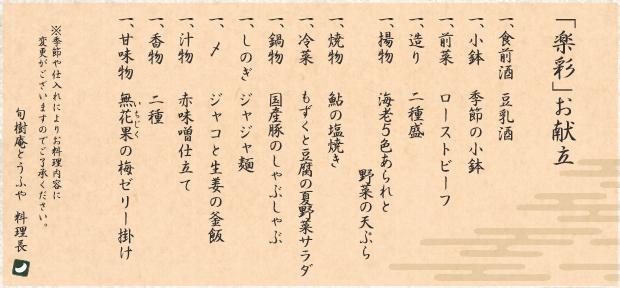 「楽彩」お献立
一、食前酒　豆乳酒
一、小鉢　季節の小鉢
一、前菜　ローストビーフ
一、造り　二種盛
一、揚物　海老5色あられと
野菜の天ぷら
一、焼物　鮎の塩焼き
一、冷菜　もずくと豆腐の夏野菜サラダ
一、鍋物　国産豚のしゃぶしゃぶ
一、しのぎ　ジャジャ麺
一、〆　ジャコと生姜の釜飯
一、汁物　赤味噌仕立て
一、香物　二種
一、甘味物　無花果の梅ゼリー掛け
いちじく
※季節や仕入れによりお料理内容に
変更がございますのでご了承ください。
旬樹庵とうふや　料理長